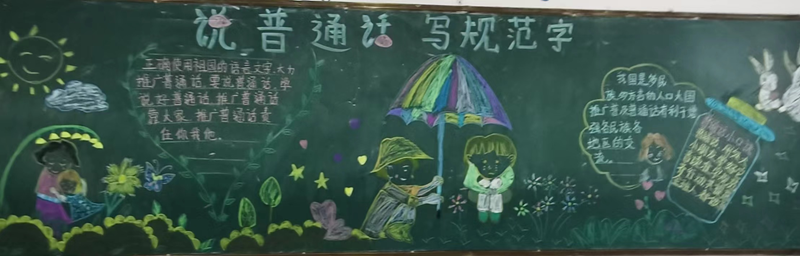 说普通话 写规范字
正确使用祖国的语言文字,大力
推广普通话,要说普通话,学
说好普通话,推广普通话
靠大家,推广普通话责
任你我他。
我国是多民
族,多方言的人口大国
推广普及普通话有利于增
强各民族各
地区的交
流……